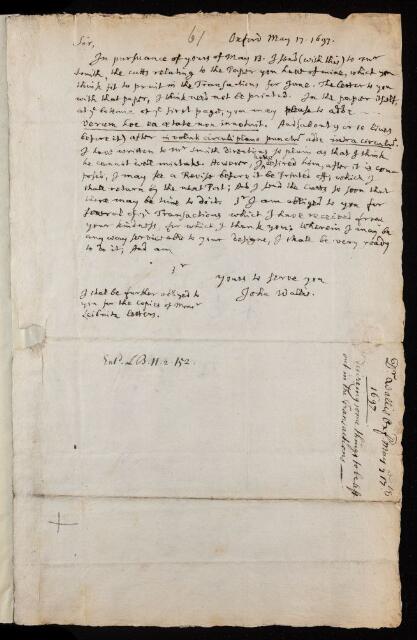 6/ Oxford May 17. 1697.
Sir,
In pursuance of yours of May 13. I send (with this) to Mr
Smith, the cutts relating to the Paper you have of mine, which you
think fit to print in the Transactions for June. The Letter to you
with that paper, I think need not be printed. In the paper it self,
at ye bottome of ye first page, you may please to adde
verum hoc ea aetate non innotuit. And (about 9 or 10 lines
before it) after in volvit circuli plano punctum adde intra circulum.
I have written to Mr Smith directions so plain as that I think
he cannot well mistake. However, I have desired him, after it is com-
posed, I may see a Revise before it be Printed off; which I
shall return by the next Post; And I send the Cutts so soon that
there may be time to do it. Sr I am obliged to you for
several of ye Transactions which I have received from
your kindness, for which I thank you; wherein I may be
any way serviceable to your designe, I shall be very ready
to do it; And am
Sr
yours to serve you
John Wallis.
I shal be further obliged to
you for the copies of Monsr
Leibnitz Letters.
Entd. LB. 11. 2. 152.
Dr Wallis Oxf May 17
1697
desireing some things to be
out in the Transactions